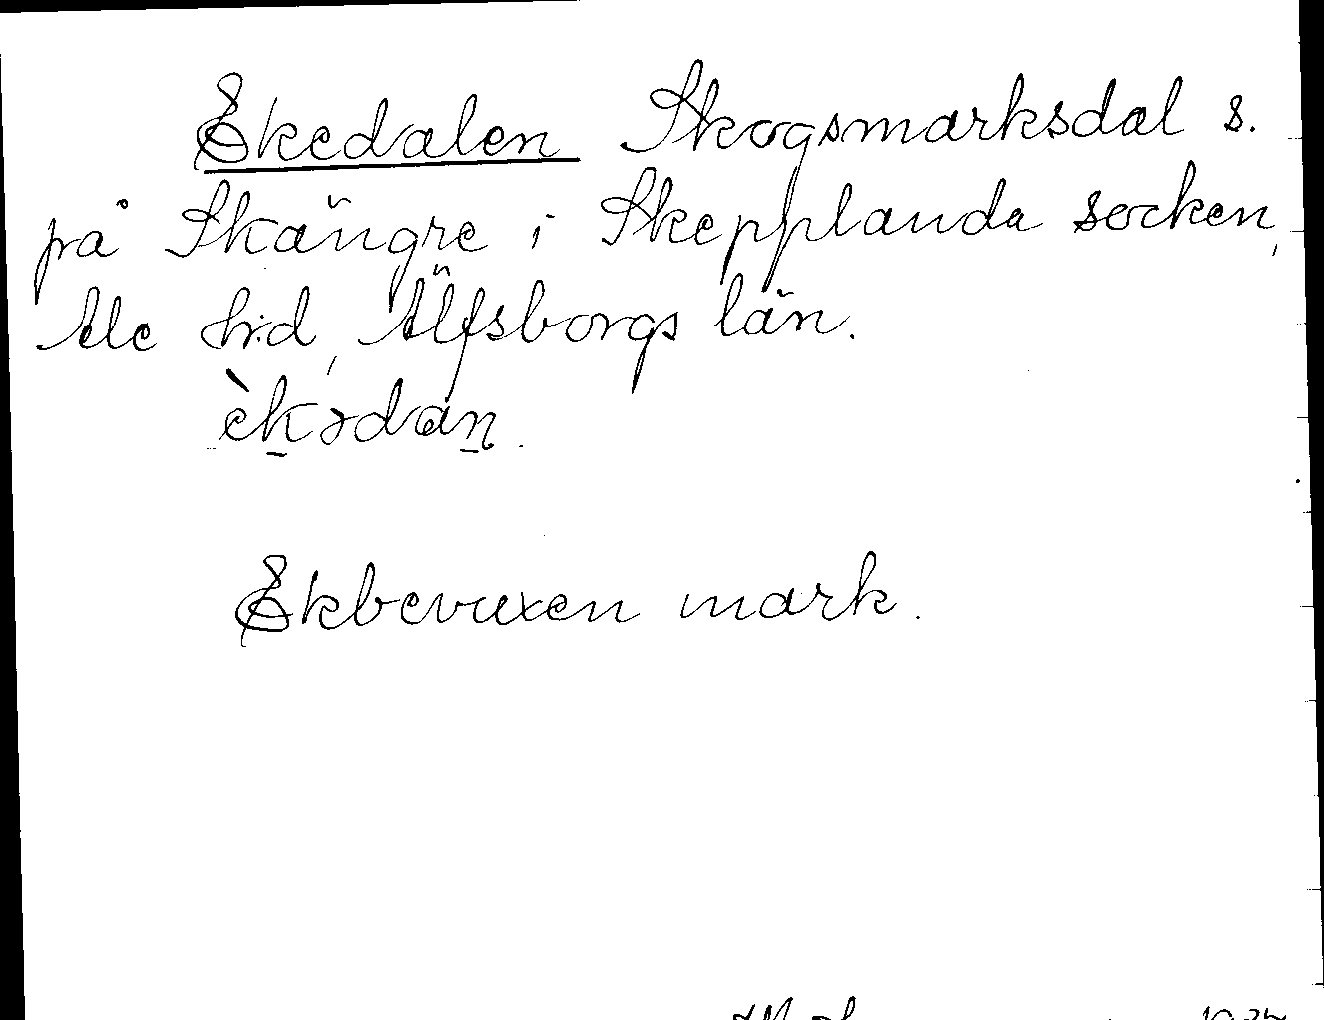 Ekedalen Skogsmarksdal s.
på Skängre i Skepplanda socken,
Ale h:d, Älfsborgs län.
èkədan.
Ekbevuxen mark.